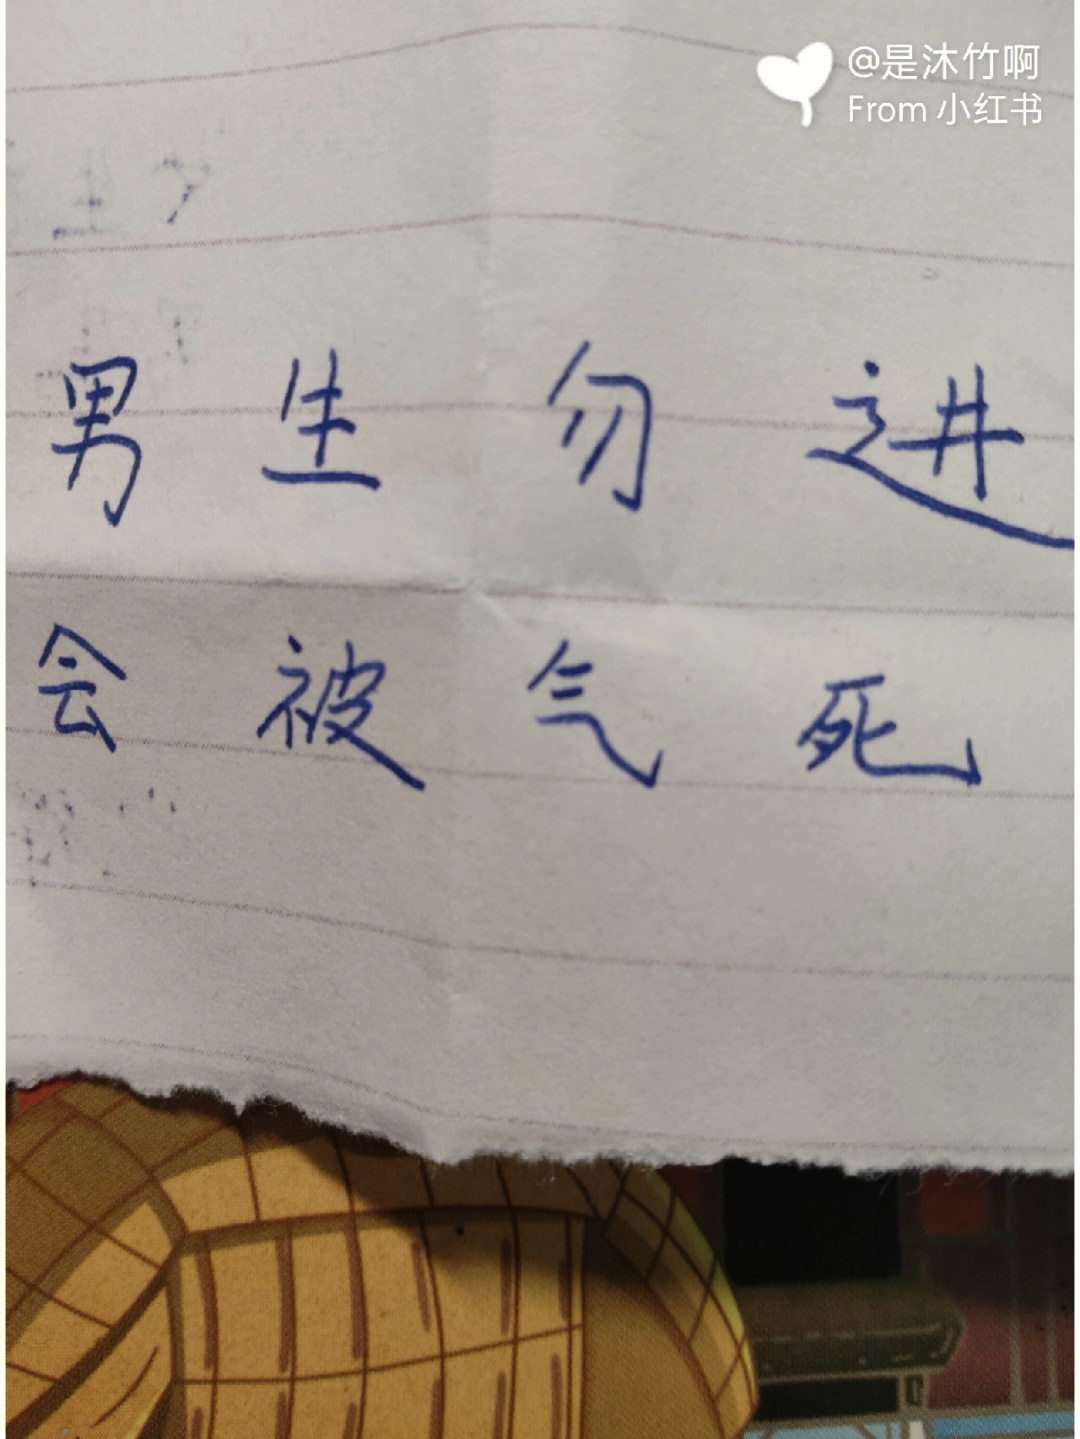 @是沐竹啊
From 小红书
男生勿进
会被气死